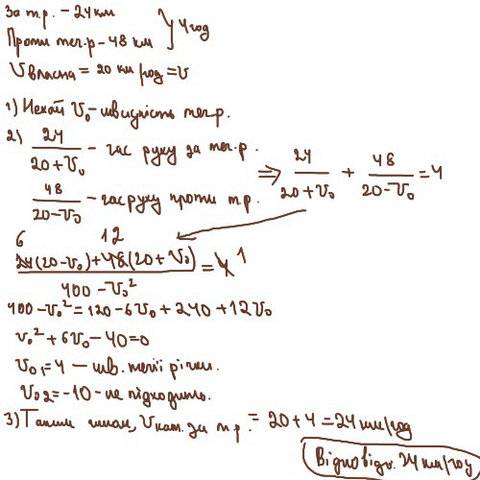 За т.р. – 24 км
Проти теч.р – 48 км } 4 год
Vвласна = 20 км/год = V
1) Нехай V₀ – швидкість теч.р.
2) 24/(20+V₀) – час руху за теч.р.
48/(20-V₀) – час руху проти т.р.
⇒ 24/(20+V₀) + 48/(20-V₀) = 4
6 12
(24(20-V₀)+48(20+V₀))/(400-V₀²) = 4 1
400-V₀² = 120-6V₀+240+12V₀
V₀²+6V₀-40=0
V₀₁=4 – шв. течії річки.
V₀₂=-10 – не підходить.
3) Таким чином, Vкат. за т.р. = 20+4=24 км/год
Відповідь: 24 км/год